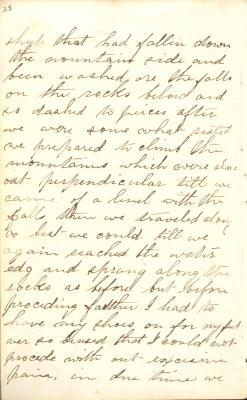 28
that had fallen down
the mountain side and
been washed over the falls
on the rocks below and
so dashed to pieces after
we were some what rested
we prepared to climb the
mountains which were alm-
ost perpendicular till we
came of a level with the
falls then we traveled along
as best we could till we
again reached the waters
edg and sprang along the
rocks as before but before
proceding farther I had to
have my shoes on for my feet
wer so brused that I could not
procede with out
pain, in due time we